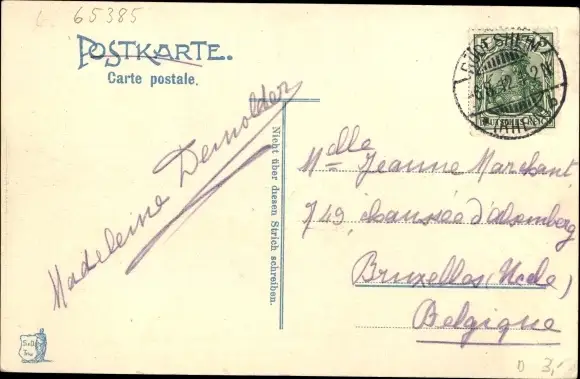 65385
POSTKARTE.
Carte postale.
Madeleine Demolder
Nicht über diesen Strich schreiben.
RÜDESHEIM
DEUTSCHES REICH
Mlle Jeanne Marchant
749, chaussée d'Alsemberg
Bruxelles (Uccle)
Belgique
3,-